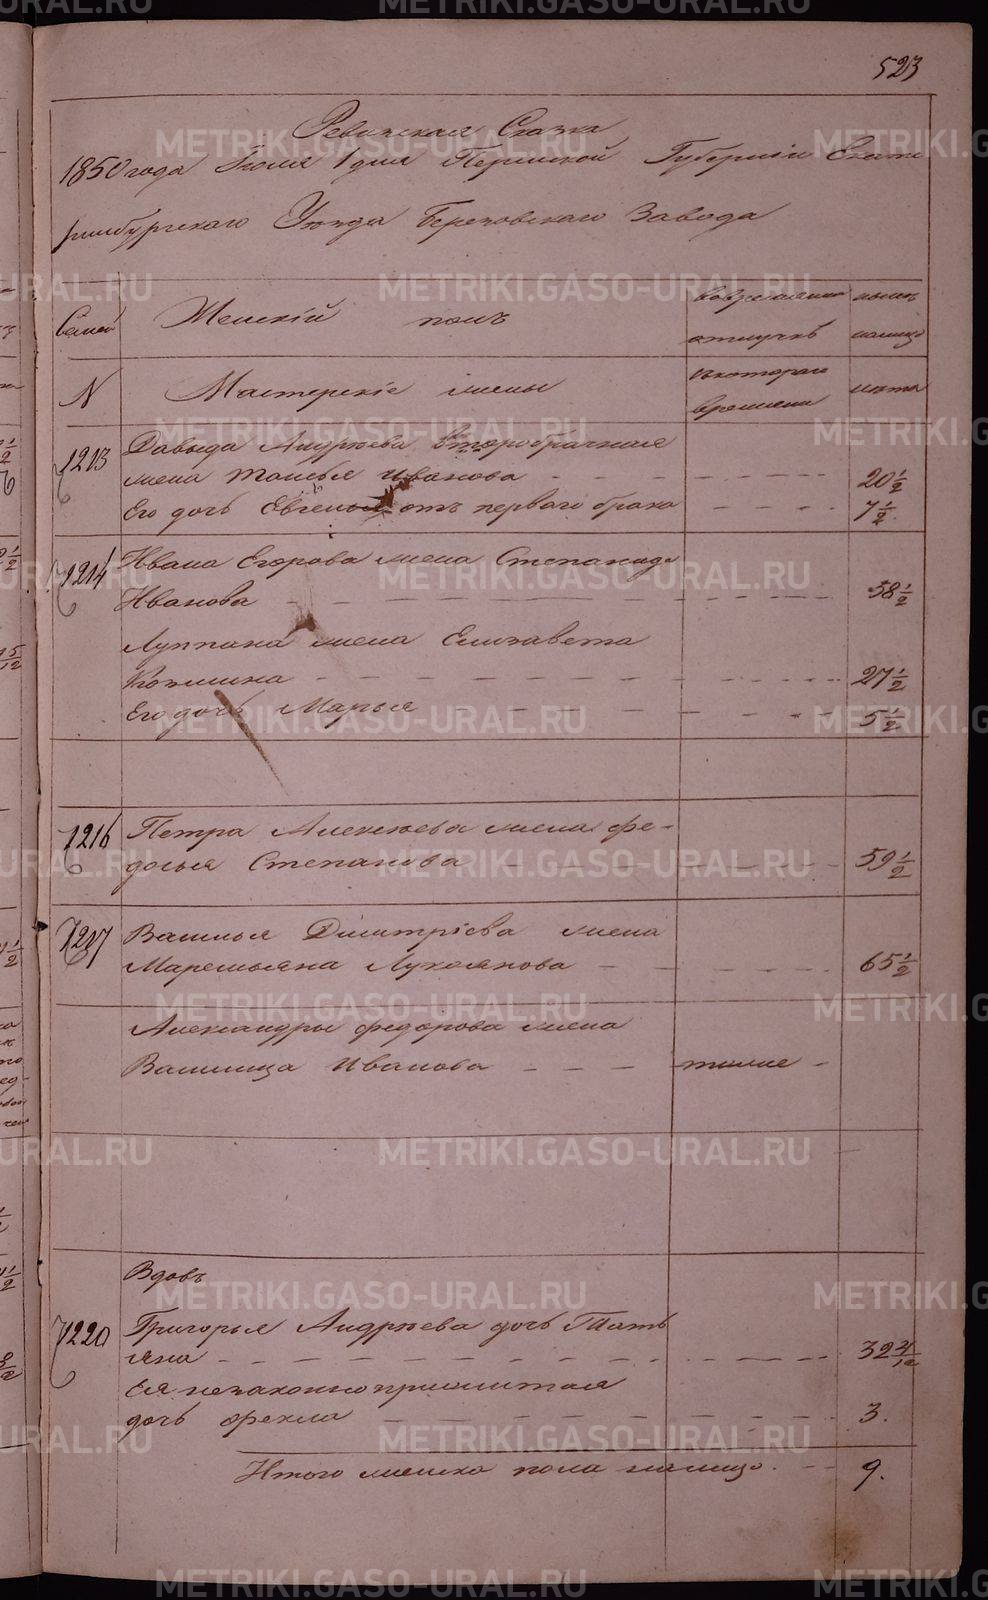 523
Ревизская Сказка
1850 года Июля 1 дня Пермской Губернии Екате
ринбургского Уезда Березовского Завода
Семей Женскій полъ вовременно нынѣ
отлучкѣ налицо
N Мастерскіе жены съкотораго лѣта
времени
1213 Давыда Андреева второбрачная
жена Таисья Иванова - - - - 20 1/2
Его дочь Евгенья отъ перваго брака - - - - 7 1/2
1214 Ивана Егорова жена Степанида
Иванова - - - - 38 1/2
Луппана жена Елизавета
Козмина - - - - 27 1/2
Его дочь Марья - - - - 5 1/2
1216 Петра Алексеева жена Фе-
досья Степанова - - - - 59 1/2
1217 Василья Димитріева жена
Маремьяна Лукоянова - - - - 65 1/2
Александры Федорова жена
Василиса Иванова - - - тоже -
Вдовъ
1220 Григорья Андреева дочь Тать
яна - - - - 32 4/12
Ея незаконноприжитая
дочь Фекла - - - - 3.
Итого женска пола налицо. - - 9.
METRIKI.GASO-URAL.RU